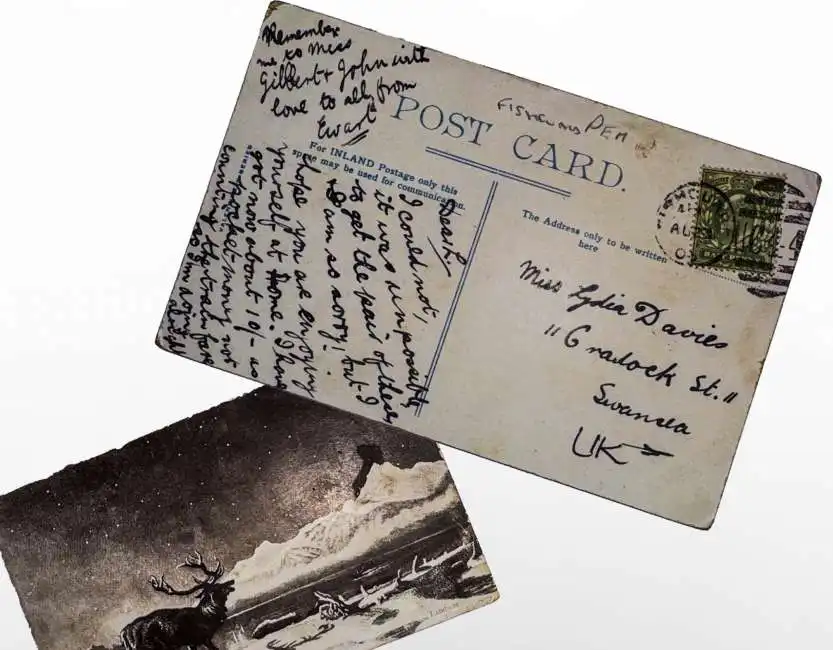 Remember
me to Miss
Gilbert & John with
love to all, from
Ewart
POST CARD.
For INLAND Postage only this
space may be used for communication.
The Address only to be written
here
Dear L.
I could not,
it was impossible
to get the pair of these
I am so sorry, but I
hope you are enjoying
yourself at Home. I have
got now about 10/- as
pocket money, not
counting the train fare
so I'm doing
alright
FISHGUARD
AU
Miss Lydia Davies
"Cradock St."
Swansea
UK